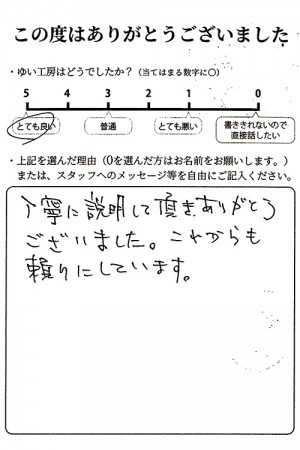 この度はありがとうございました
・ゆい工房はどうでしたか？（当てはまる数字に○）
5 4 3 2 1 0
とても良い 普通 とても悪い 書ききれないので
直接話したい
・上記を選んだ理由（0を選んだ方はお名前をお願いします。）
または、スタッフへのメッセージ等を自由にご記入ください。
丁寧に説明して頂きありがとう
ございました。これからも
頼りにしています。